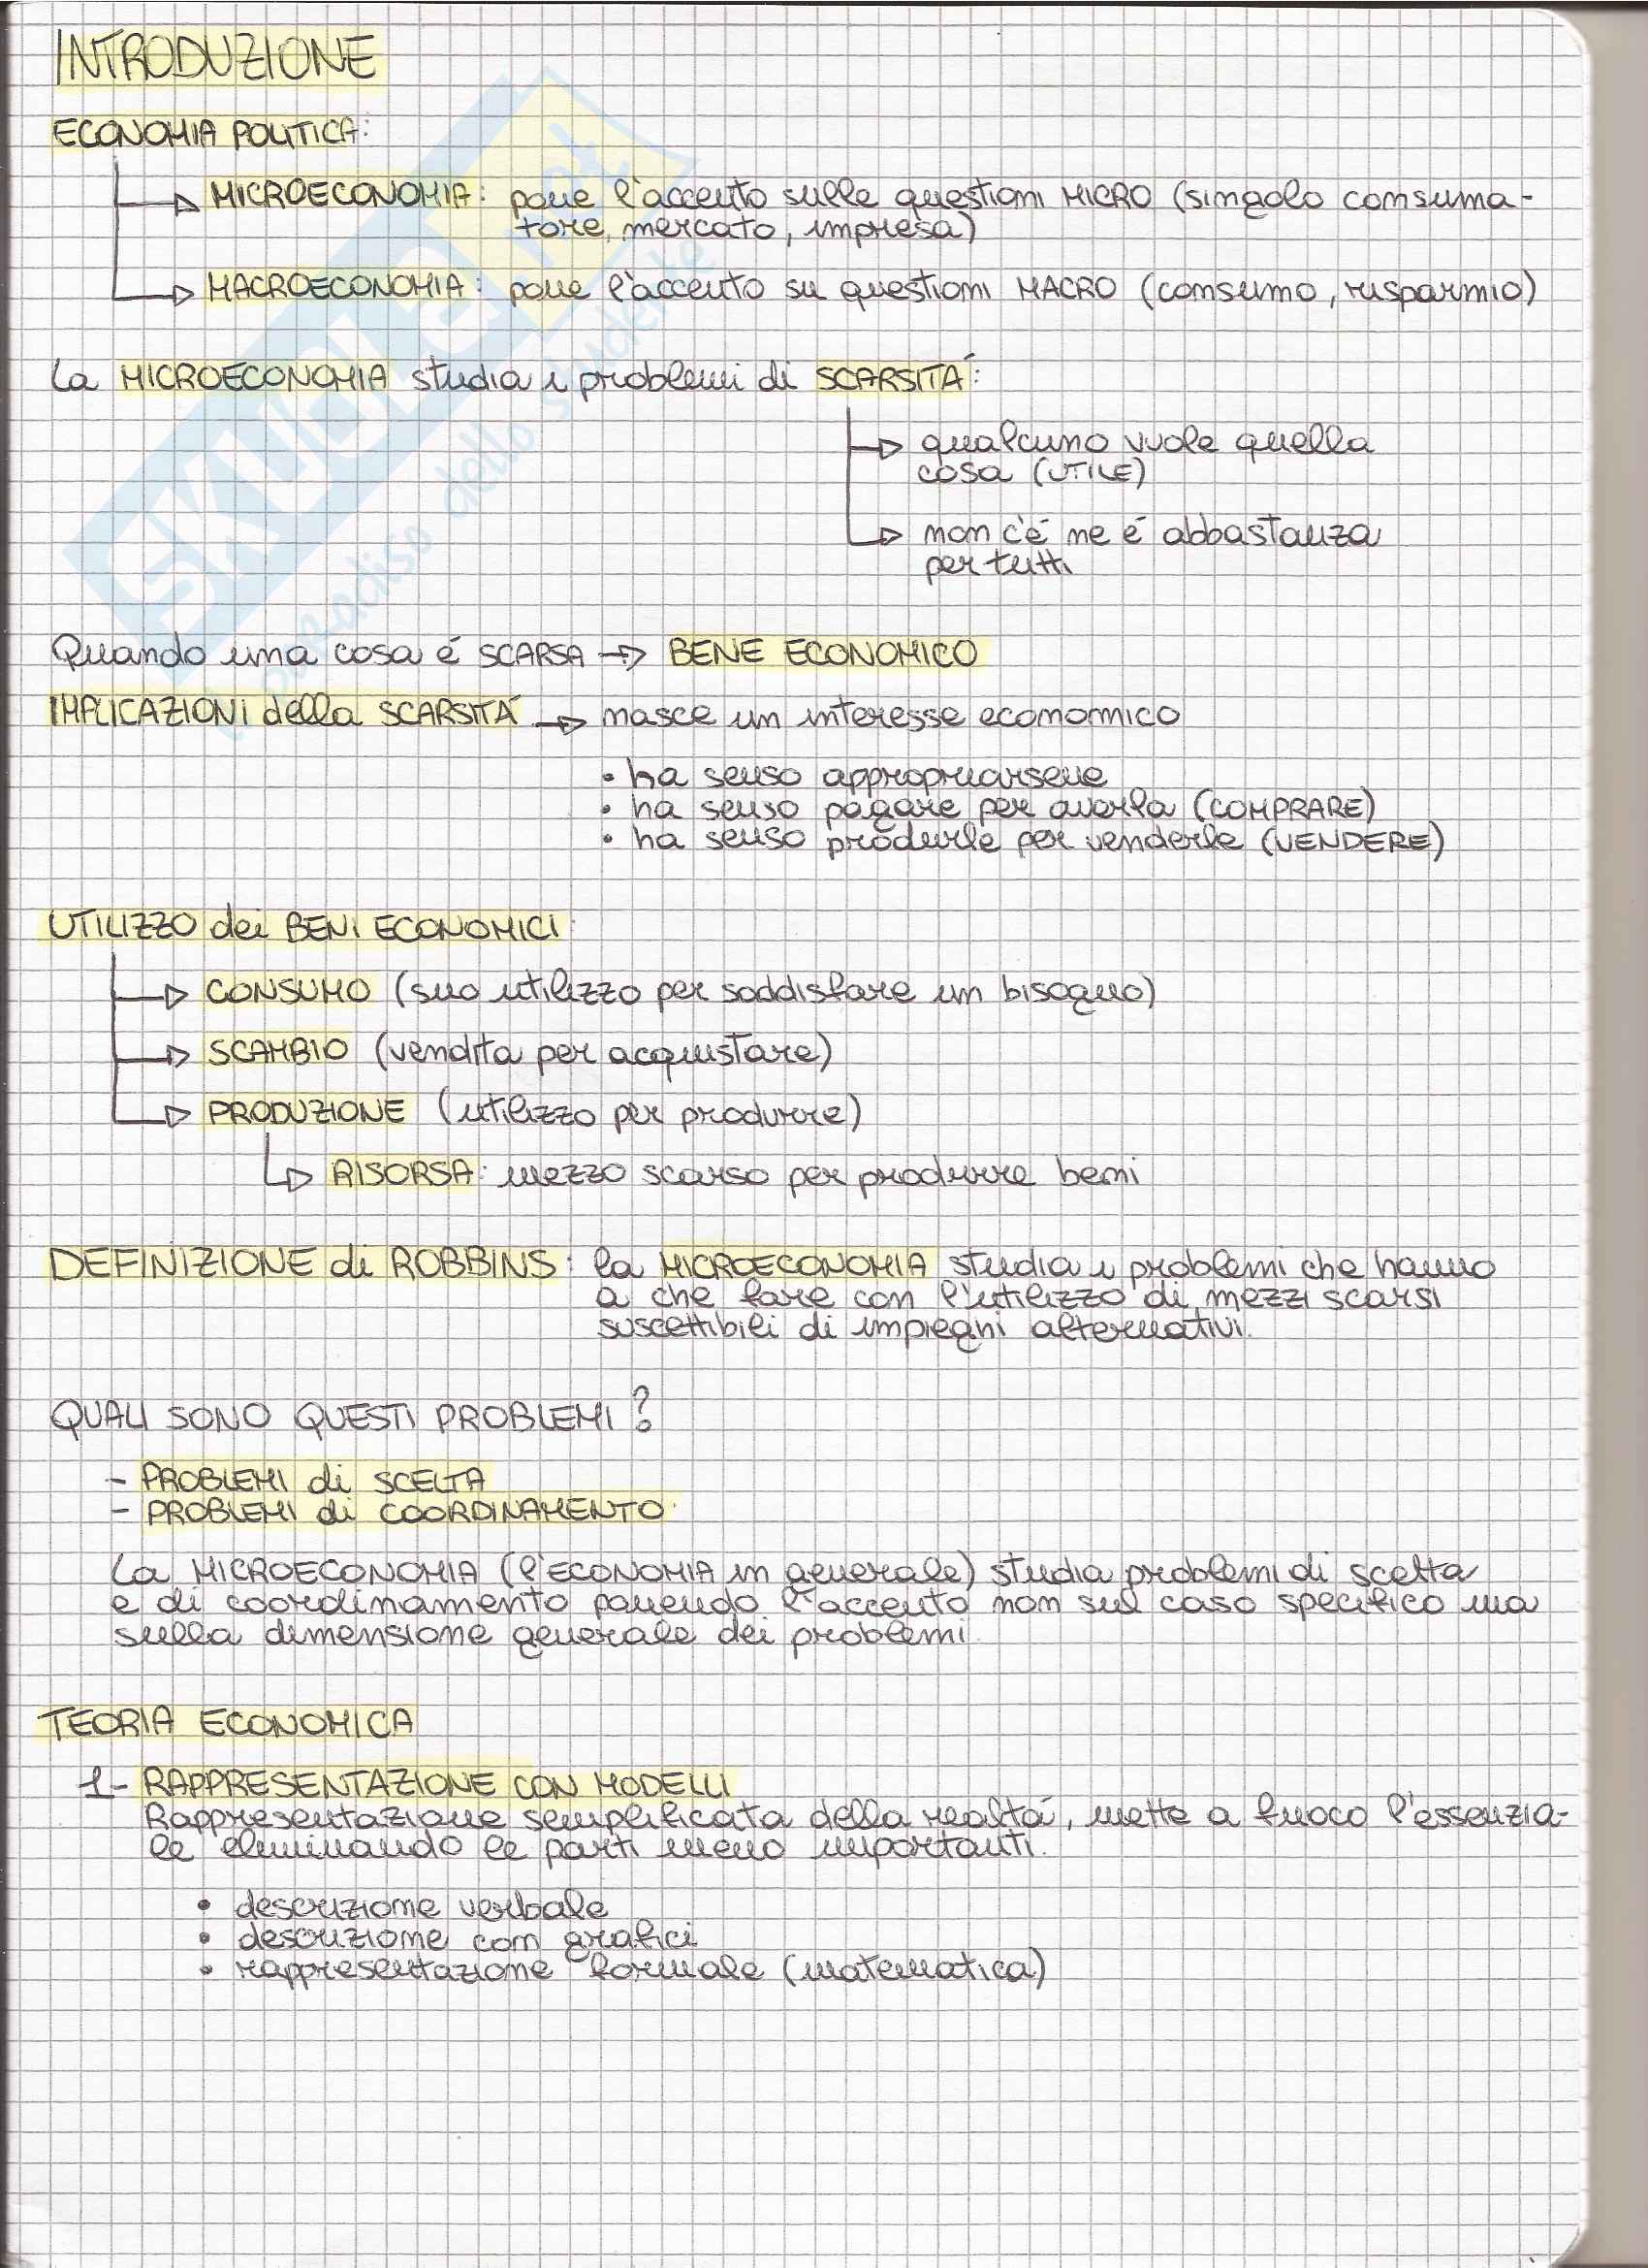 INTRODUZIONE
ECONOMIA POLITICA:
MICROECONOMIA: pone l'accento sulle questioni MICRO (singolo consuma-
tore, mercato, impresa)
MACROECONOMIA: pone l'accento su questioni MACRO (consumo, risparmio)
La MICROECONOMIA studia i problemi di SCARSITÁ:
qualcuno vuole quella
cosa (UTILE)
non c'é ne é abbastanza
per tutti
Quando una cosa é SCARSA → BENE ECONOMICO
IMPLICAZIONI della SCARSITÁ → nasce un interesse economico
• ha senso appropriarsene
• ha senso pagare per averla (COMPRARE)
• ha senso produrle per venderle (VENDERE)
UTILIZZO dei BENI ECONOMICI:
CONSUMO (suo utilizzo per soddisfare un bisogno)
SCAMBIO (vendita per acquistare)
PRODUZIONE (utilizzo per produrre)
RISORSA: mezzo scarso per produrre beni
DEFINIZIONE di ROBBINS: la MICROECONOMIA studia i problemi che hanno
a che fare con l'utilizzo di mezzi scarsi
suscettibili di impieghi alternativi.
QUALI SONO QUESTI PROBLEMI?
- PROBLEMI di SCELTA
- PROBLEMI di COORDINAMENTO.
La MICROECONOMIA (l'ECONOMIA in generale) studia problemi di scelta
e di coordinamento ponendo l'accento non sul caso specifico ma
sulla dimensione generale dei problemi.
TEORIA ECONOMICA
1- RAPPRESENTAZIONE CON MODELLI
Rappresentazione semplificata della realtá, mette a fuoco l'essenzia-
le eliminando le parti meno importanti.
• descrizione verbale
• descrizione con grafici
• rappresentazione formale (matematica)
SKUOLA.net
il paradiso dello studente